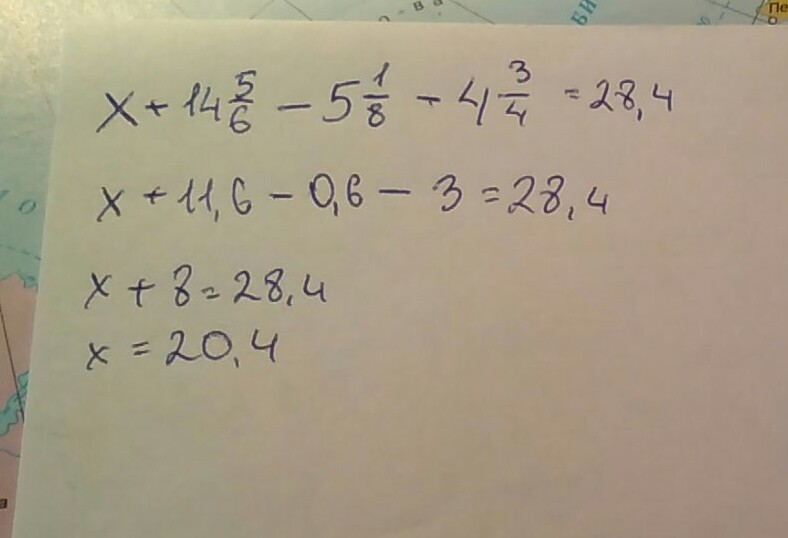 x + 14 5/6 - 5 1/8 - 4 3/4 = 28,4
x + 11,6 - 0,6 - 3 = 28,4
x + 8 = 28,4
x = 20,4